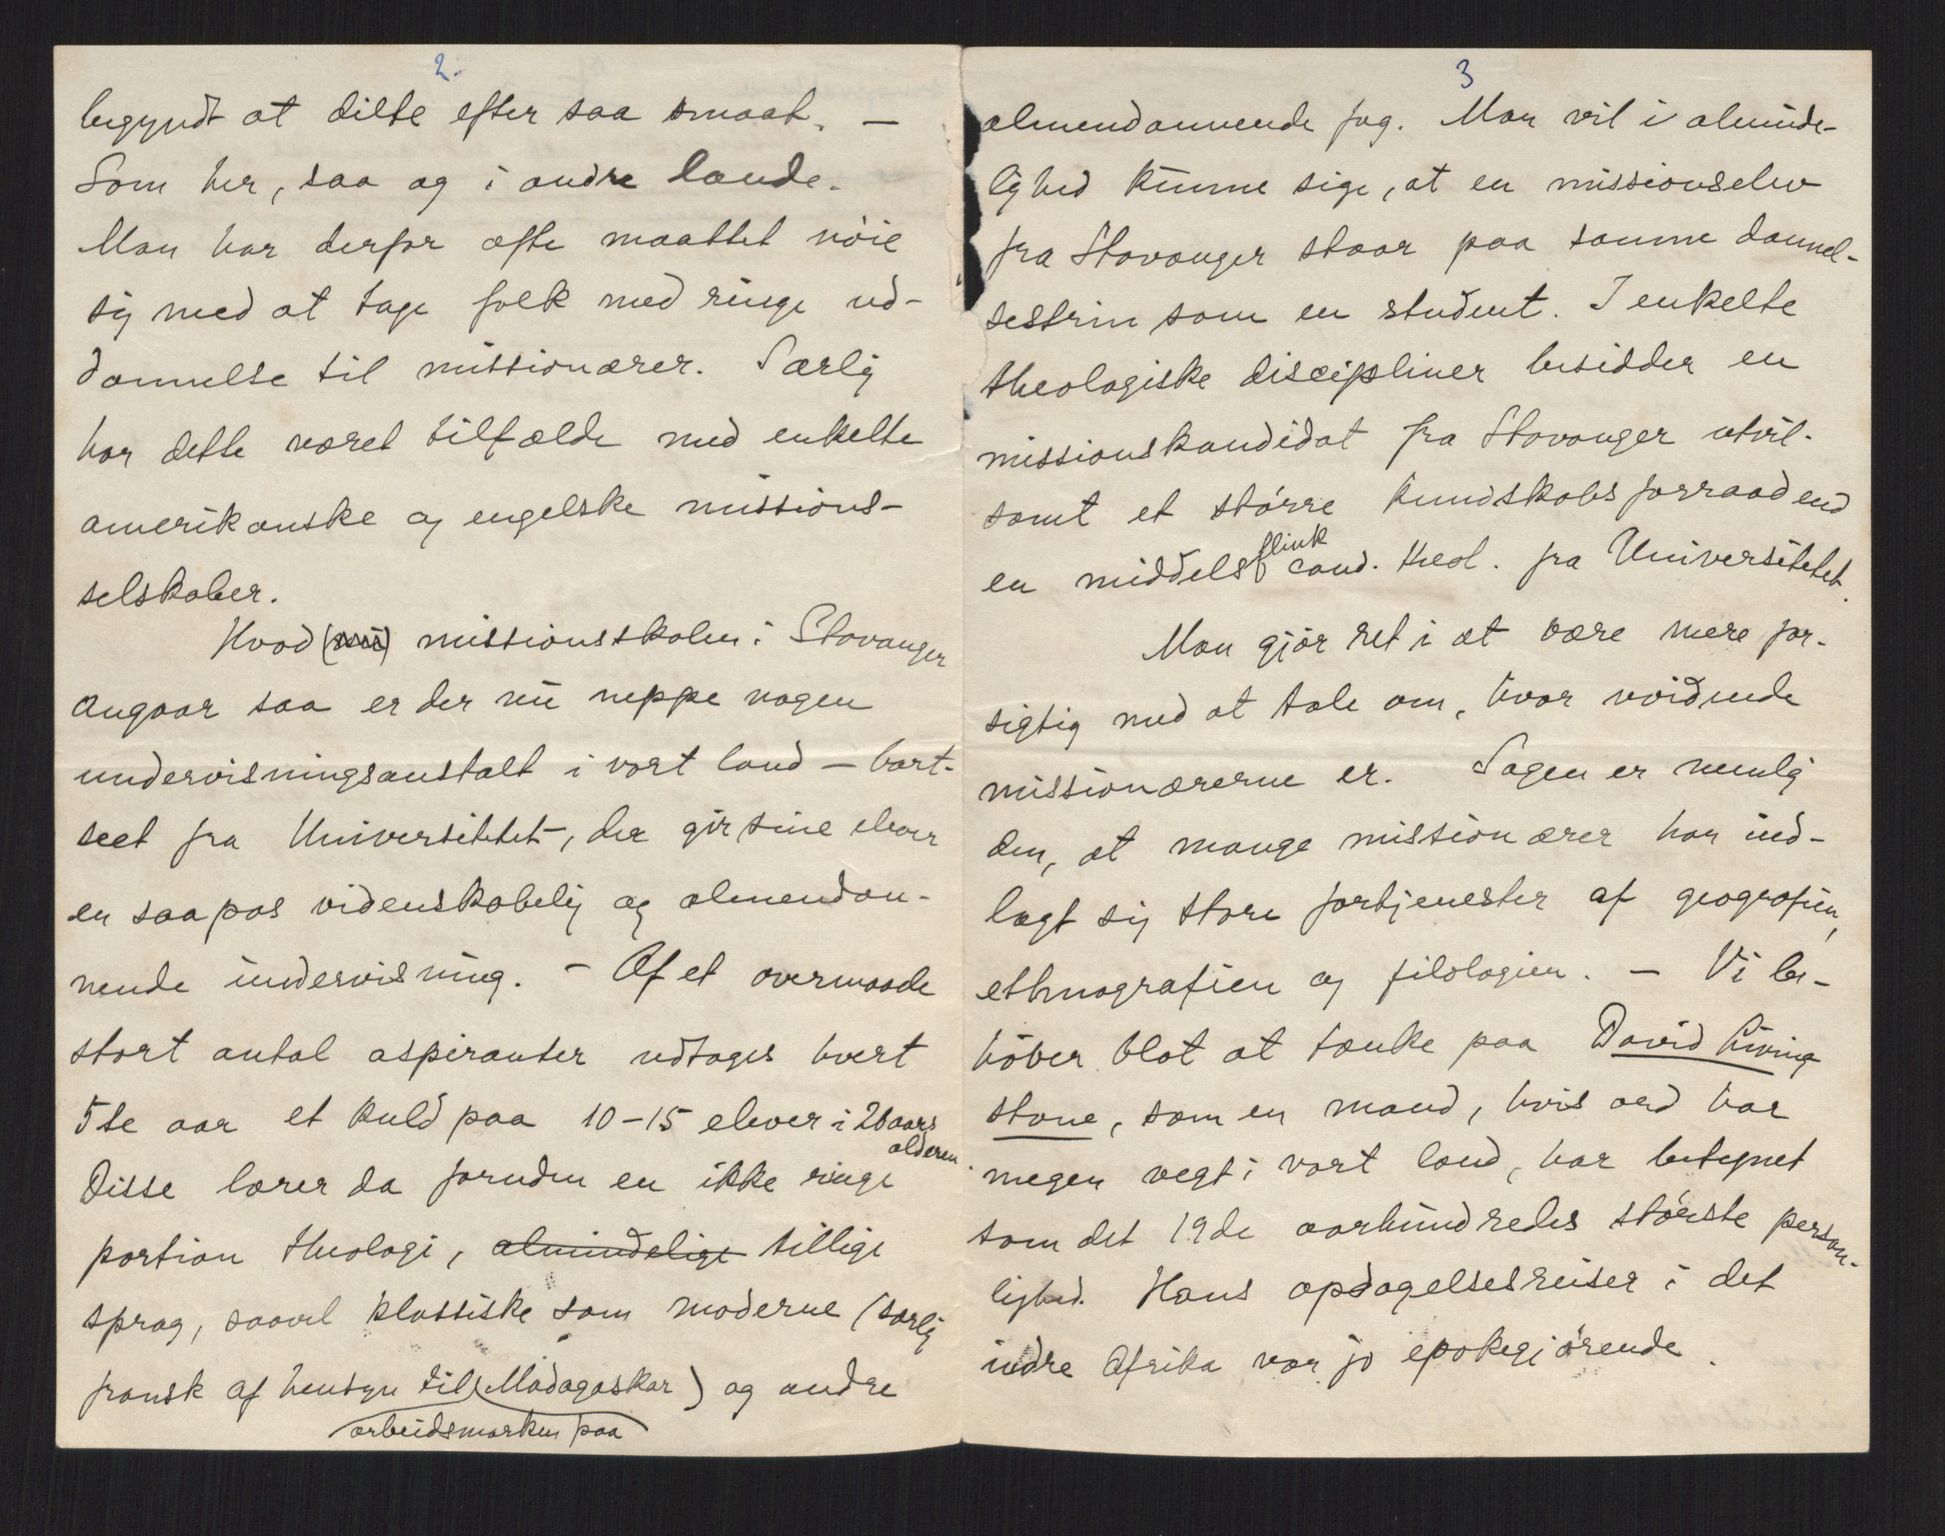 2.
begyndt at dilte efter saa smaat. —
Som her, saa og i andre lande.
Man har derfor ofte maattet nöie
sig med at tage folk med ringe ud-
dannelse til missionærer. Særlig
har dette været tilfælde med enkelte
amerikanske og engelske missions-
selskaber.
Hvad missionsskolen i Stavanger
angaar saa er der nu neppe nogen
undervisningsanstalt i vort land – bort-
seet fra Universitetet –, der gir sine elever
en saapas videnskabelig og almendan-
nende undervisning. – Af et overmaade
stort antal aspiranter udtages hvert
5te aar et kuld paa 10–15 elever i 20 aars
alderen.
Disse lærer da foruden en ikke ringe
portion theologi, almindelige tillige
sprog, saavel klassiske som moderne (særlig
fransk af hensyn til Madagaskar) og andre
arbeidsmarken paa
3
almendannende fag. Man vil i alminde-
lighed kunne sige, at en missionselev
fra Stavanger staar paa samme dannel-
sestrin som en student. I enkelte
theologiske discipliner besidder en
missionskandidat fra Stavanger utvil-
somt et större kundskabsforraad end
flink
en middels cand. theol. fra Universitetet.
Man gjör ret i at være mere for-
sigtig med at tale om, hvor uvidende
missionærerne er. Sagen er nemlig
den, at mange missionærer har ind-
lagt sig store fortjenester af geografien,
ethnografien og filologien. – Vi be-
höver blot at tænke paa David Living
stone, som en mand, hvis ord har
megen vegt i vort land, har betegnet
som det 19de aarhundredes störste person-
lighed. Hans opdagelsesreiser i det
indre Afrika var jo epokegjörende.